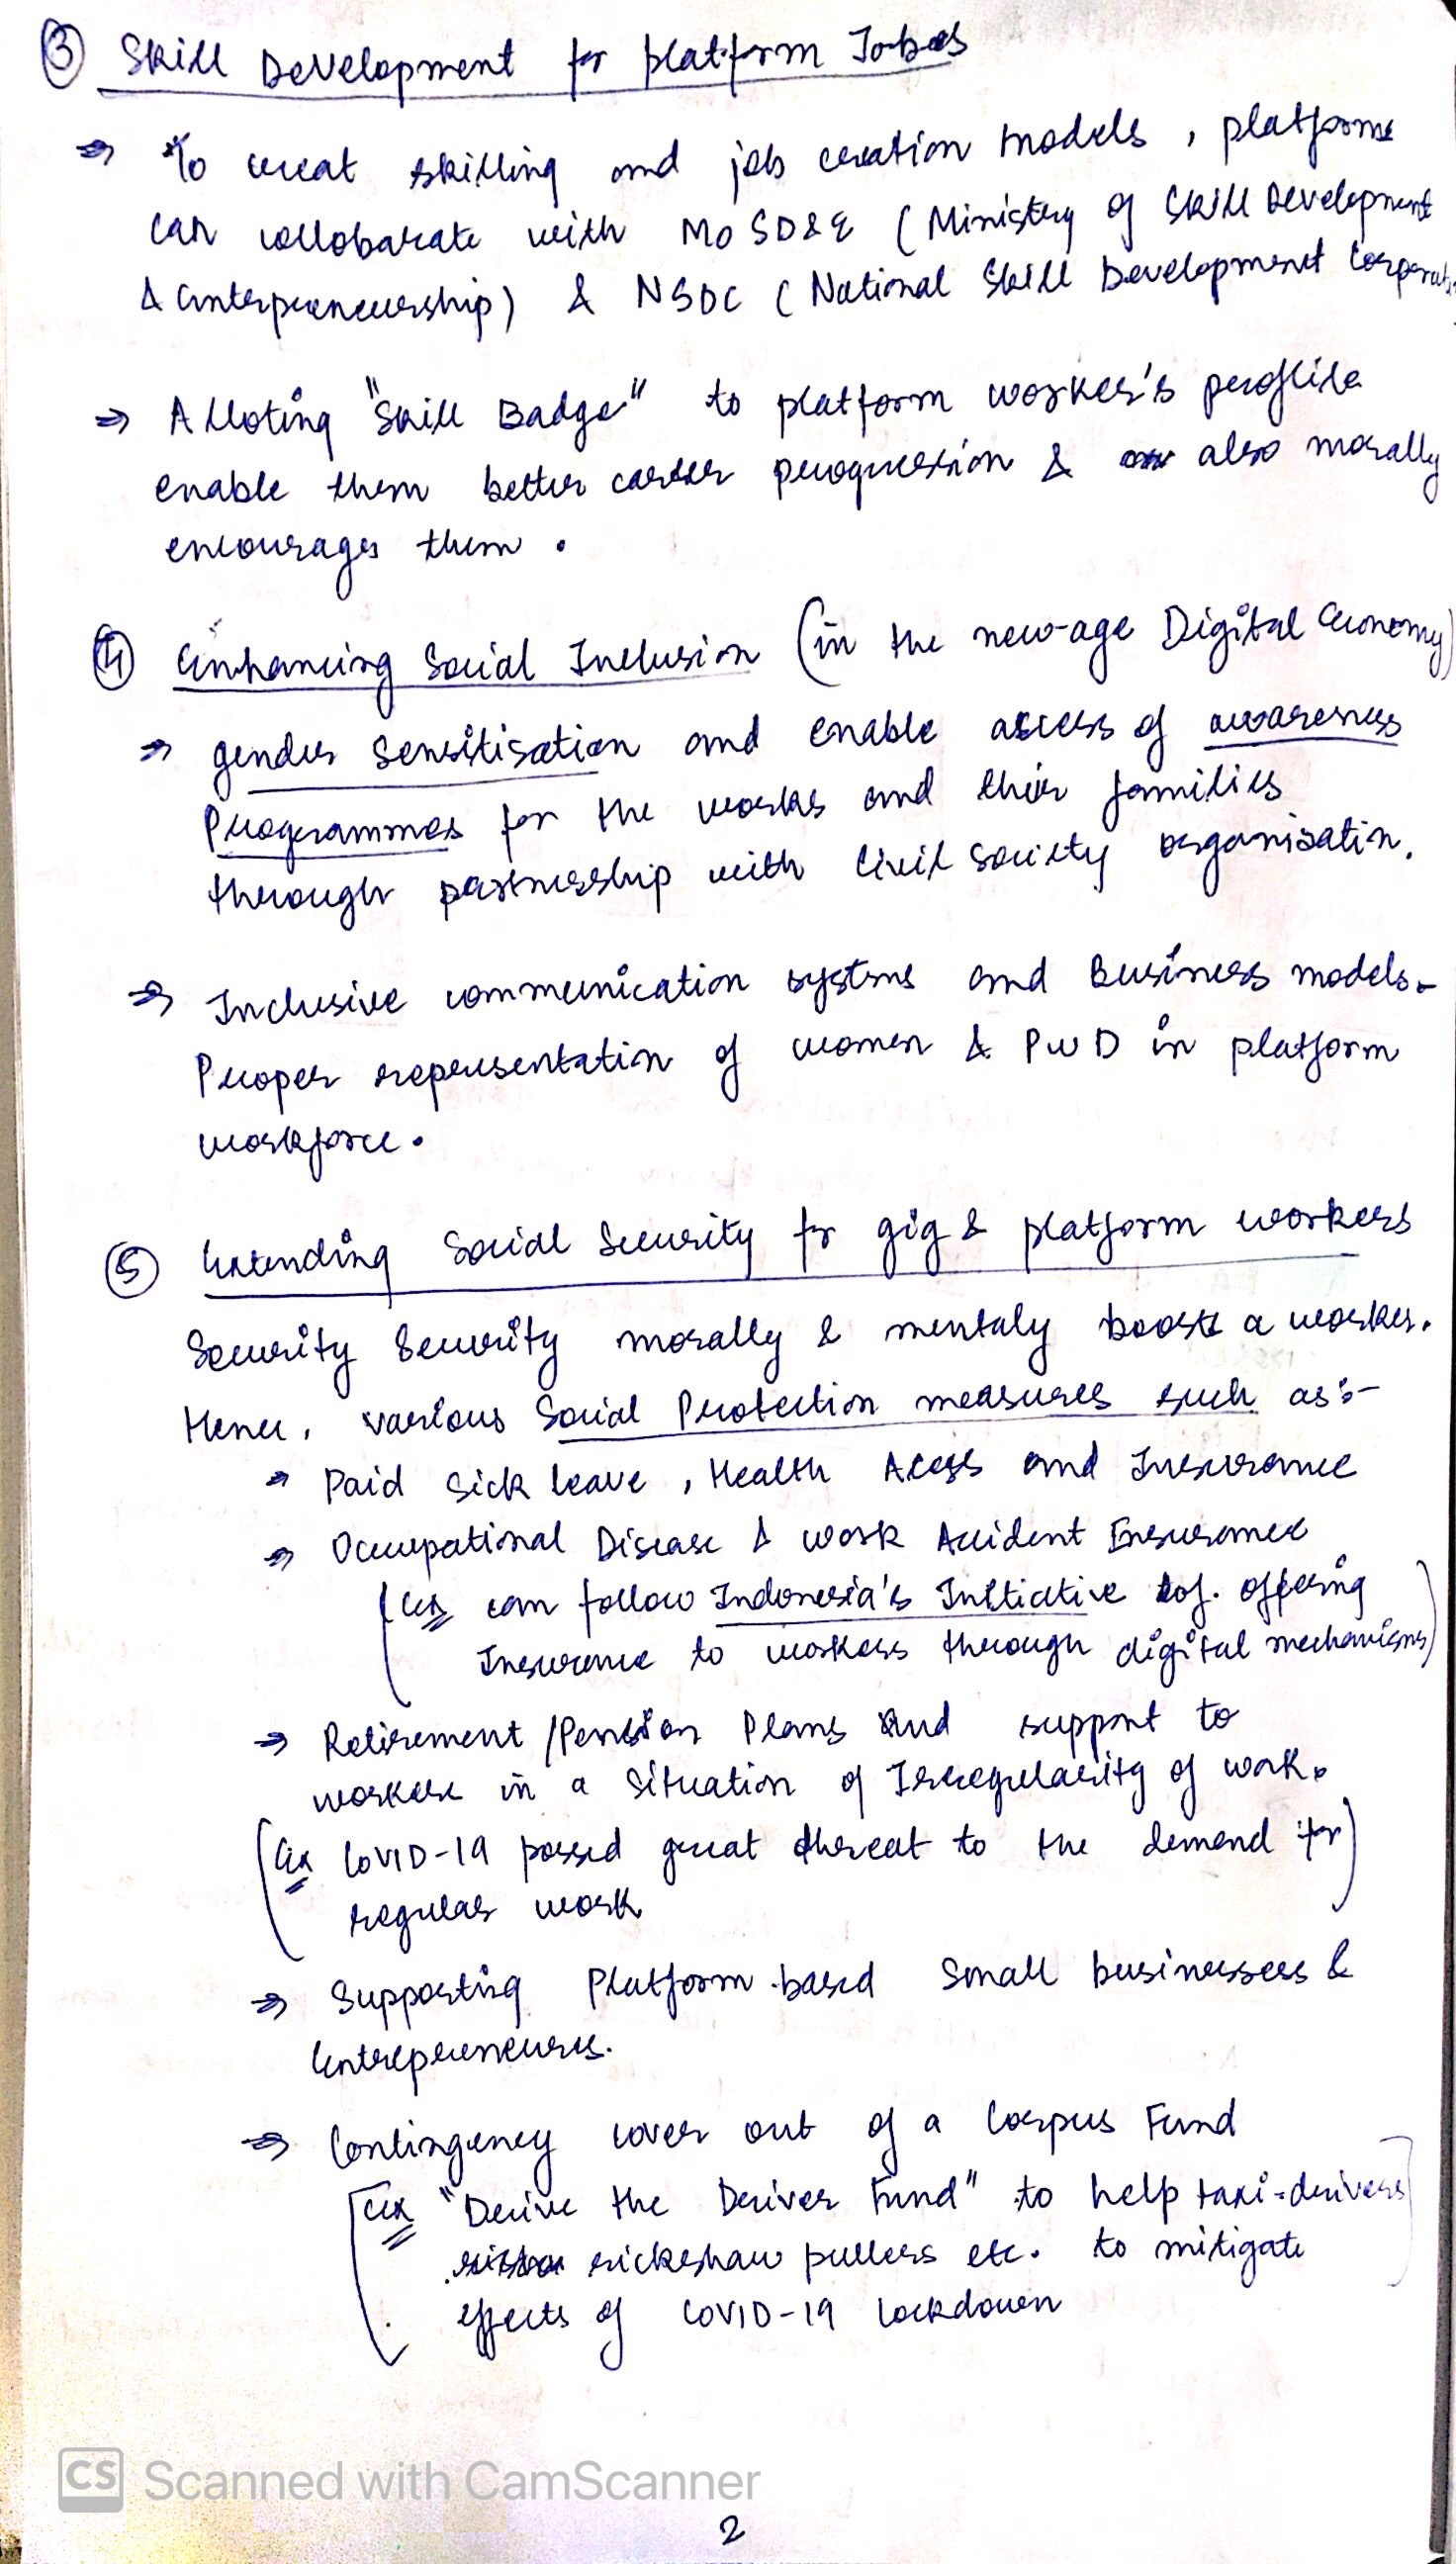 ③ Skill Development for platform Jobs
⇒ To creat skilling and job creation models, platforms
can collobarate with MoSD&E (Ministry of Skill Development
& Enterpreneurship) & NSDC (National Skill Development Corporat
⇒ Alloting "Skill Badge" to platform worker's profile
enable them better career progression & also morally
encourages them.
④ Enhancing Social Inclusion (in the new-age Digital Economy)
⇒ gender sensitisation and enable access of awareness
Programmes for the works and their families
through partnership with Civil Society organisatin.
⇒ Inclusive communication systms and Business models.
Proper representation of women & PwD in platform
workforce.
⑤ Extending Social Security for gig & platform workers
Security Security morally & mentaly boosts a worker.
Hence, various Social Protection measures such as:-
⇒ Paid Sick leave, Health Acess and Insurance
⇒ Occupational Disease & work Accident Insurance
(Ex can follow Indonesia's Initiative of offering
Insurance to workers through digital mechanisms)
⇒ Retirement/Pension Plans and support to
workers in a situation of Irregularity of work.
(Ex COVID-19 possed great threat to the demand for)
regular work
⇒ Supporting Platform-based Small businessess &
Entrepreneurs.
⇒ Contingency cover out of a Corpus Fund
[Ex "Drive the Driver Fund" to help taxi-drivers
rickshaw pullers etc. to mitigate
effects of COVID-19 lockdown
CS Scanned with CamScanner
2